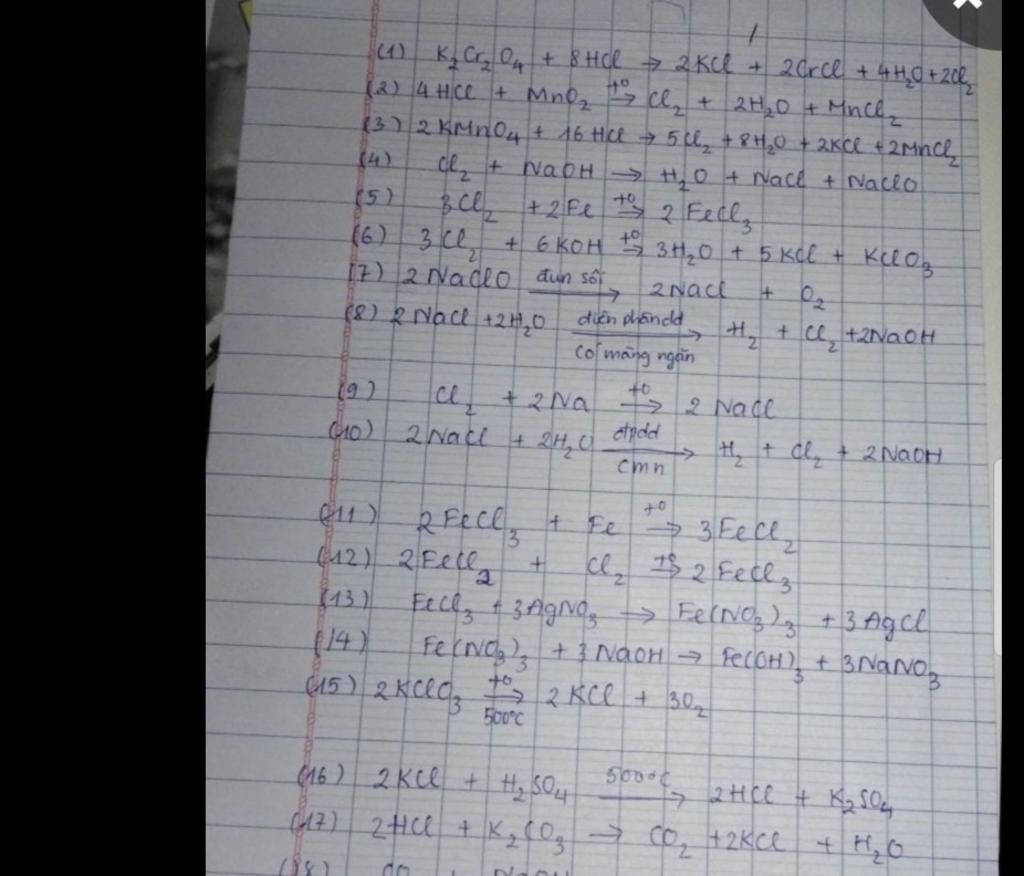 (1) K₂Cr₂O₄ + 8HCl → 2KCl + 2CrCl + 4H₂O + 2Cl₂
(2) 4HCl + MnO₂ →(t⁰) Cl₂ + 2H₂O + MnCl₂
(3) 2KMnO₄ + 16HCl → 5Cl₂ + 8H₂O + 2KCl + 2MnCl₂
(4) Cl₂ + NaOH → H₂O + NaCl + NaClO
(5) 3Cl₂ + 2Fe →(t⁰) 2FeCl₃
(6) 3Cl₂ + 6KOH →(t⁰) 3H₂O + 5KCl + KClO₃
(7) 2NaClO →(đun sôi) 2NaCl + O₂
(8) 2NaCl + 2H₂O →(điện phân dd / có màng ngăn) H₂ + Cl₂ + 2NaOH
(9) Cl₂ + 2Na →(t⁰) 2NaCl
(10) 2NaCl + 2H₂O →(đpdd / cmn) H₂ + Cl₂ + 2NaOH
(11) 2FeCl₃ + Fe →(t⁰) 3FeCl₂
(12) 2FeCl₂ + Cl₂ →(t⁰) 2FeCl₃
(13) FeCl₃ + 3AgNO₃ → Fe(NO₃)₃ + 3AgCl
(14) Fe(NO₃)₃ + 3NaOH → Fe(OH)₃ + 3NaNO₃
(15) 2KClO₃ →(t⁰ / 500°C) 2KCl + 3O₂
(16) 2KCl + H₂SO₄ →(500°C) 2HCl + K₂SO₄
(17) 2HCl + K₂CO₃ → CO₂ + 2KCl + H₂O
(18)